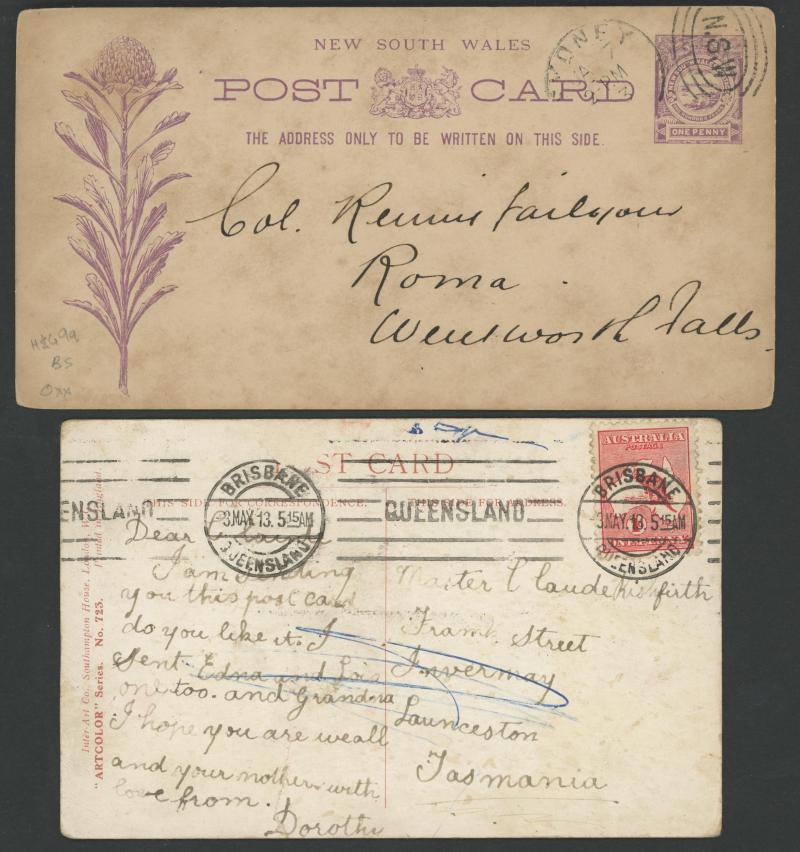 NEW SOUTH WALES
POST CARD
THE ADDRESS ONLY TO BE WRITTEN ON THIS SIDE.
SYDNEY
N.S.W
ONE PENNY
Col.
Roma.
Wentworth Falls.
BS
Oxx
POST CARD
THIS SIDE FOR CORRESPONDENCE. THIS SIDE FOR ADDRESS.
BRISBANE
3.MAY.13. 5.15AM
QUEENSLAND
QUEENSLAND
ENSLAND
AUSTRALIA
POSTAGE
ONE PENNY
BRISBANE
3.MAY.13. 5.15AM
QUEENSLAND
Inter-Art Co., Southampton House, London, W.
Printed in England.
"ARTCOLOR" Series. No. 723.
Dear
I am sending
you this post card
do you like it. I
sent Edna and Lois
one too. and Grandma
I hope you are weall
and your mother with
love from.
Dorothy
Master Claude
Street
Invermay
Launceston
Tasmania